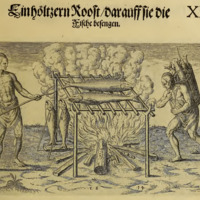 Ein höltzern Roost/darauff sie die X
Fische besengen.